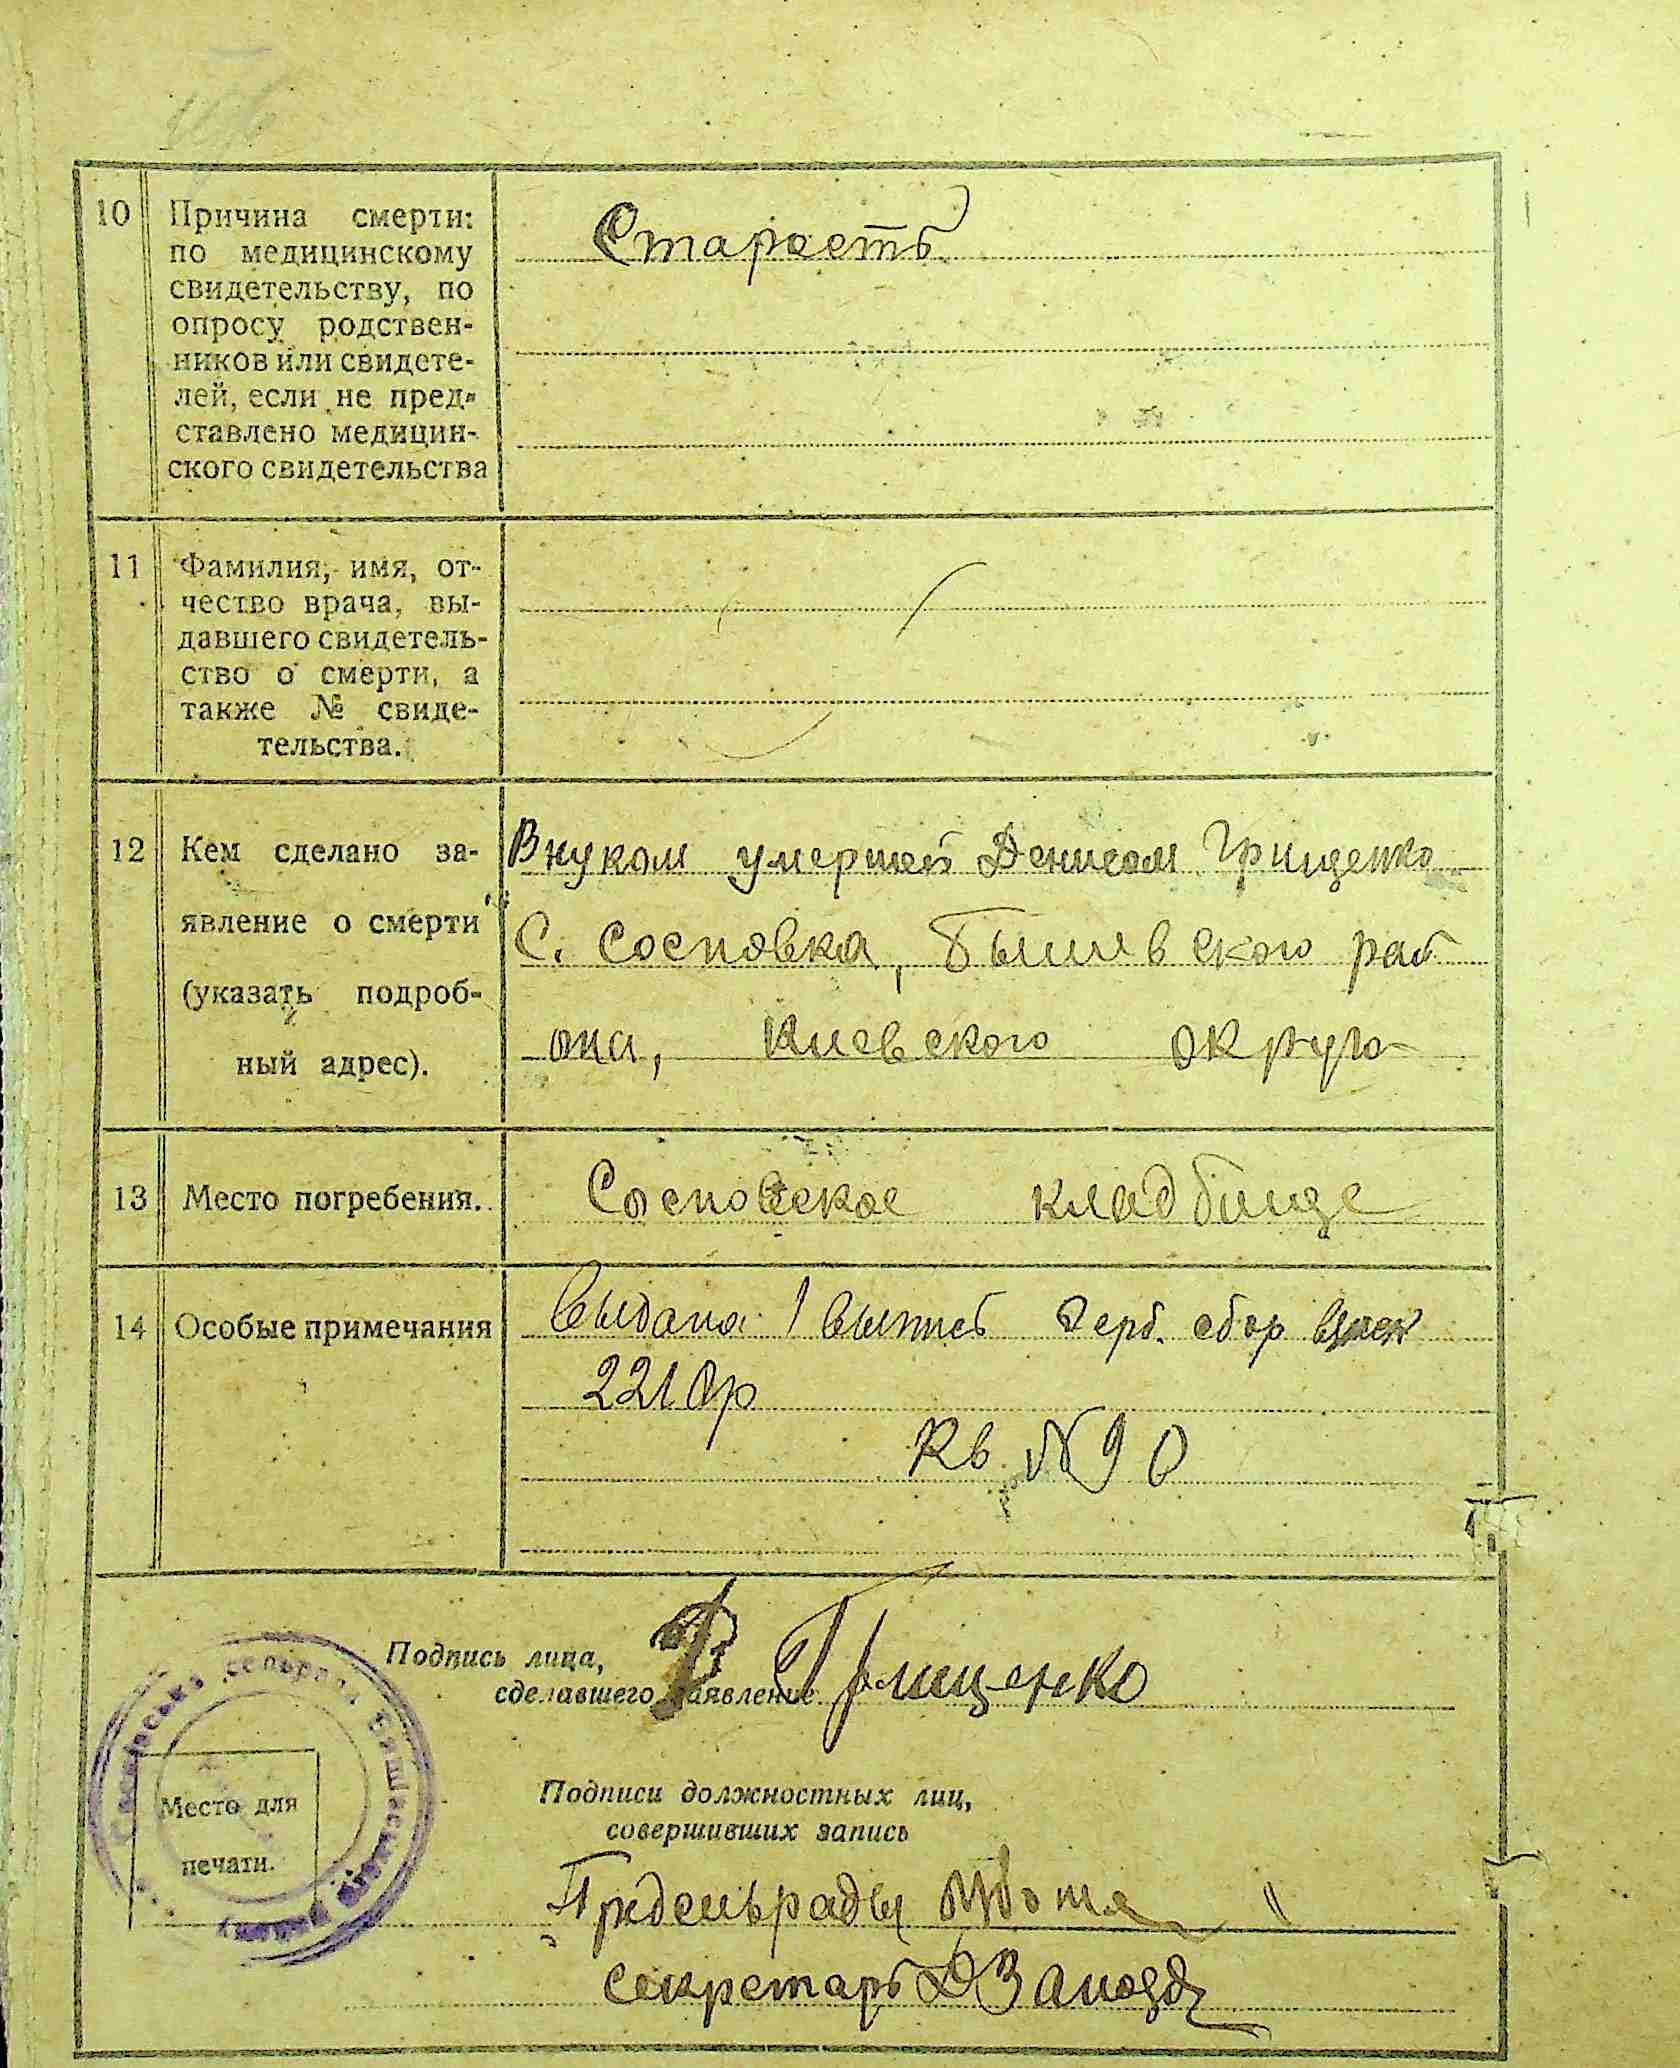 10 Причина смерти:
по медицинскому
свидетельству, по
опросу родствен-
ников или свидете-
лей, если не пред-
ставлено медицин-
ского свидетельства
Старость
11 Фамилия, имя, от-
чество врача, вы-
давшего свидетель-
ство о смерти, а
также № свиде-
тельства.
12 Кем сделано за-
явление о смерти
(указать подроб-
ный адрес).
Внуком умершей Денисом Грищенко
С. Сосновка, Бышевского рай
она, Киевского округа
13 Место погребения.
Сосновское кладбище
14 Особые примечания
Выдана 1 выпись герб. сбор
2210р
Кв №90
Подпись лица,
сделавшего заявление
Грищенко
Место для
печати.
Подписи должностных лиц,
совершивших запись
Предсельрады
Секретарь